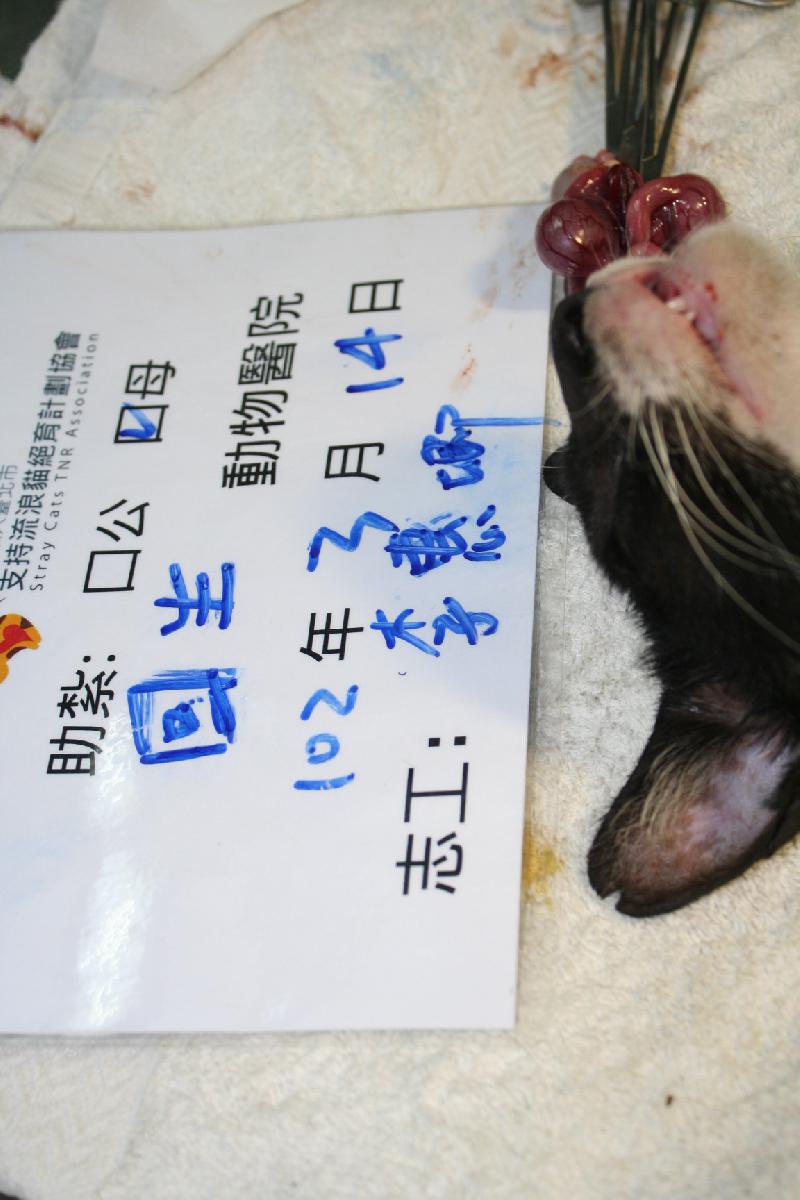 臺北市
支持流浪貓絕育計劃協會
Stray Cats TNR Association
助紮：口公 口母
回生 動物醫院
102 年 3 月 14 日
志工：李